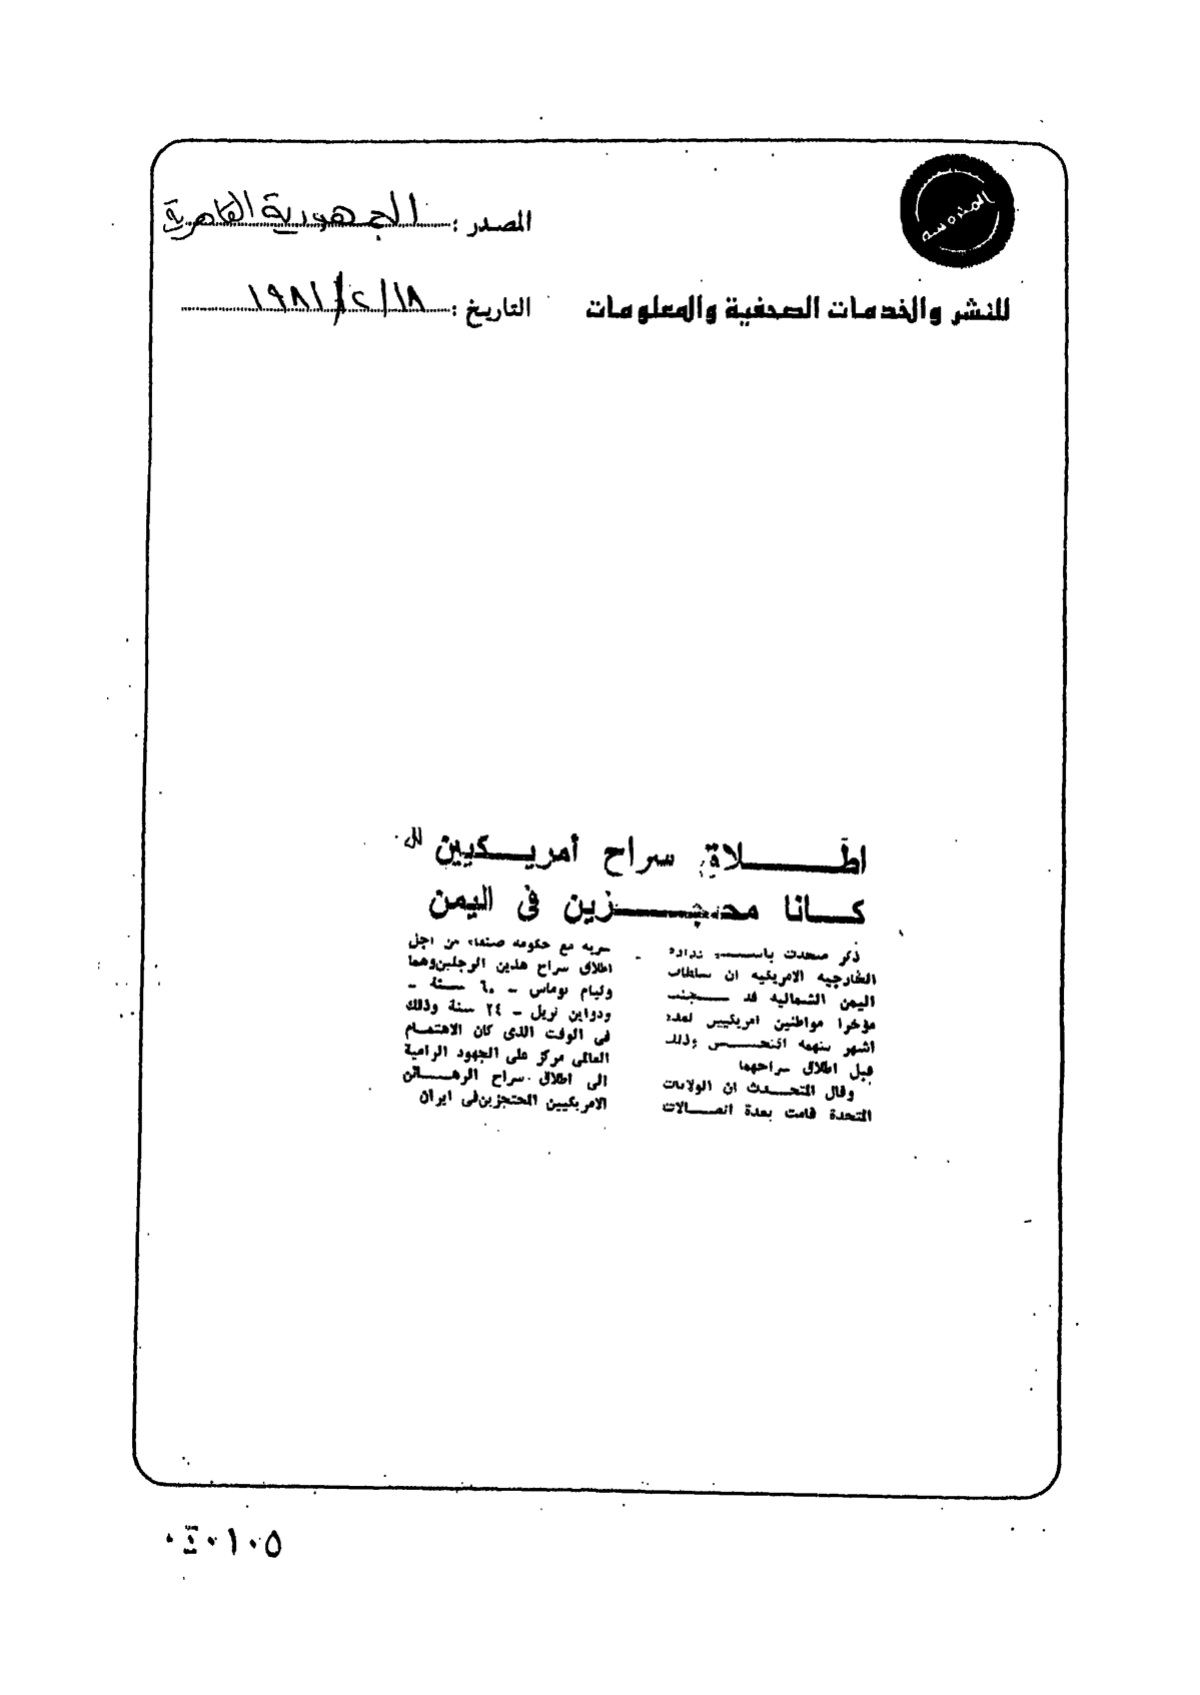 المصدر : الجمهورية القاهرية
المحروسة
للنشر والخدمات الصحفية والمعلومات
التاريخ : ١٨/٢/١٩٨١
اطلاق سراح أمريكيين
كانا محجزين فى اليمن
ذكر متحدث باسم وزارة
الخارجيه الامريكيه ان سلطات
اليمن الشماليه قد سجنت
مؤخرا مواطنين امريكيين لعدة
اشهر بتهمه التجسس وذلك
قبل اطلاق سراحهما
وقال المتحدث ان الولايات
المتحدة قامت بعدة اتصالات
سريه مع حكومه صنعاء من اجل
اطلاق سراح هذين الرجلين وهما
وليام توماس - ٦٠ سنة -
ودواين تريل - ٢٤ سنة وذلك
فى الوقت الذى كان الاهتمام
العالمى مركز على الجهود الرامية
الى اطلاق سراح الرهائن
الامريكيين المحتجزين فى ايران